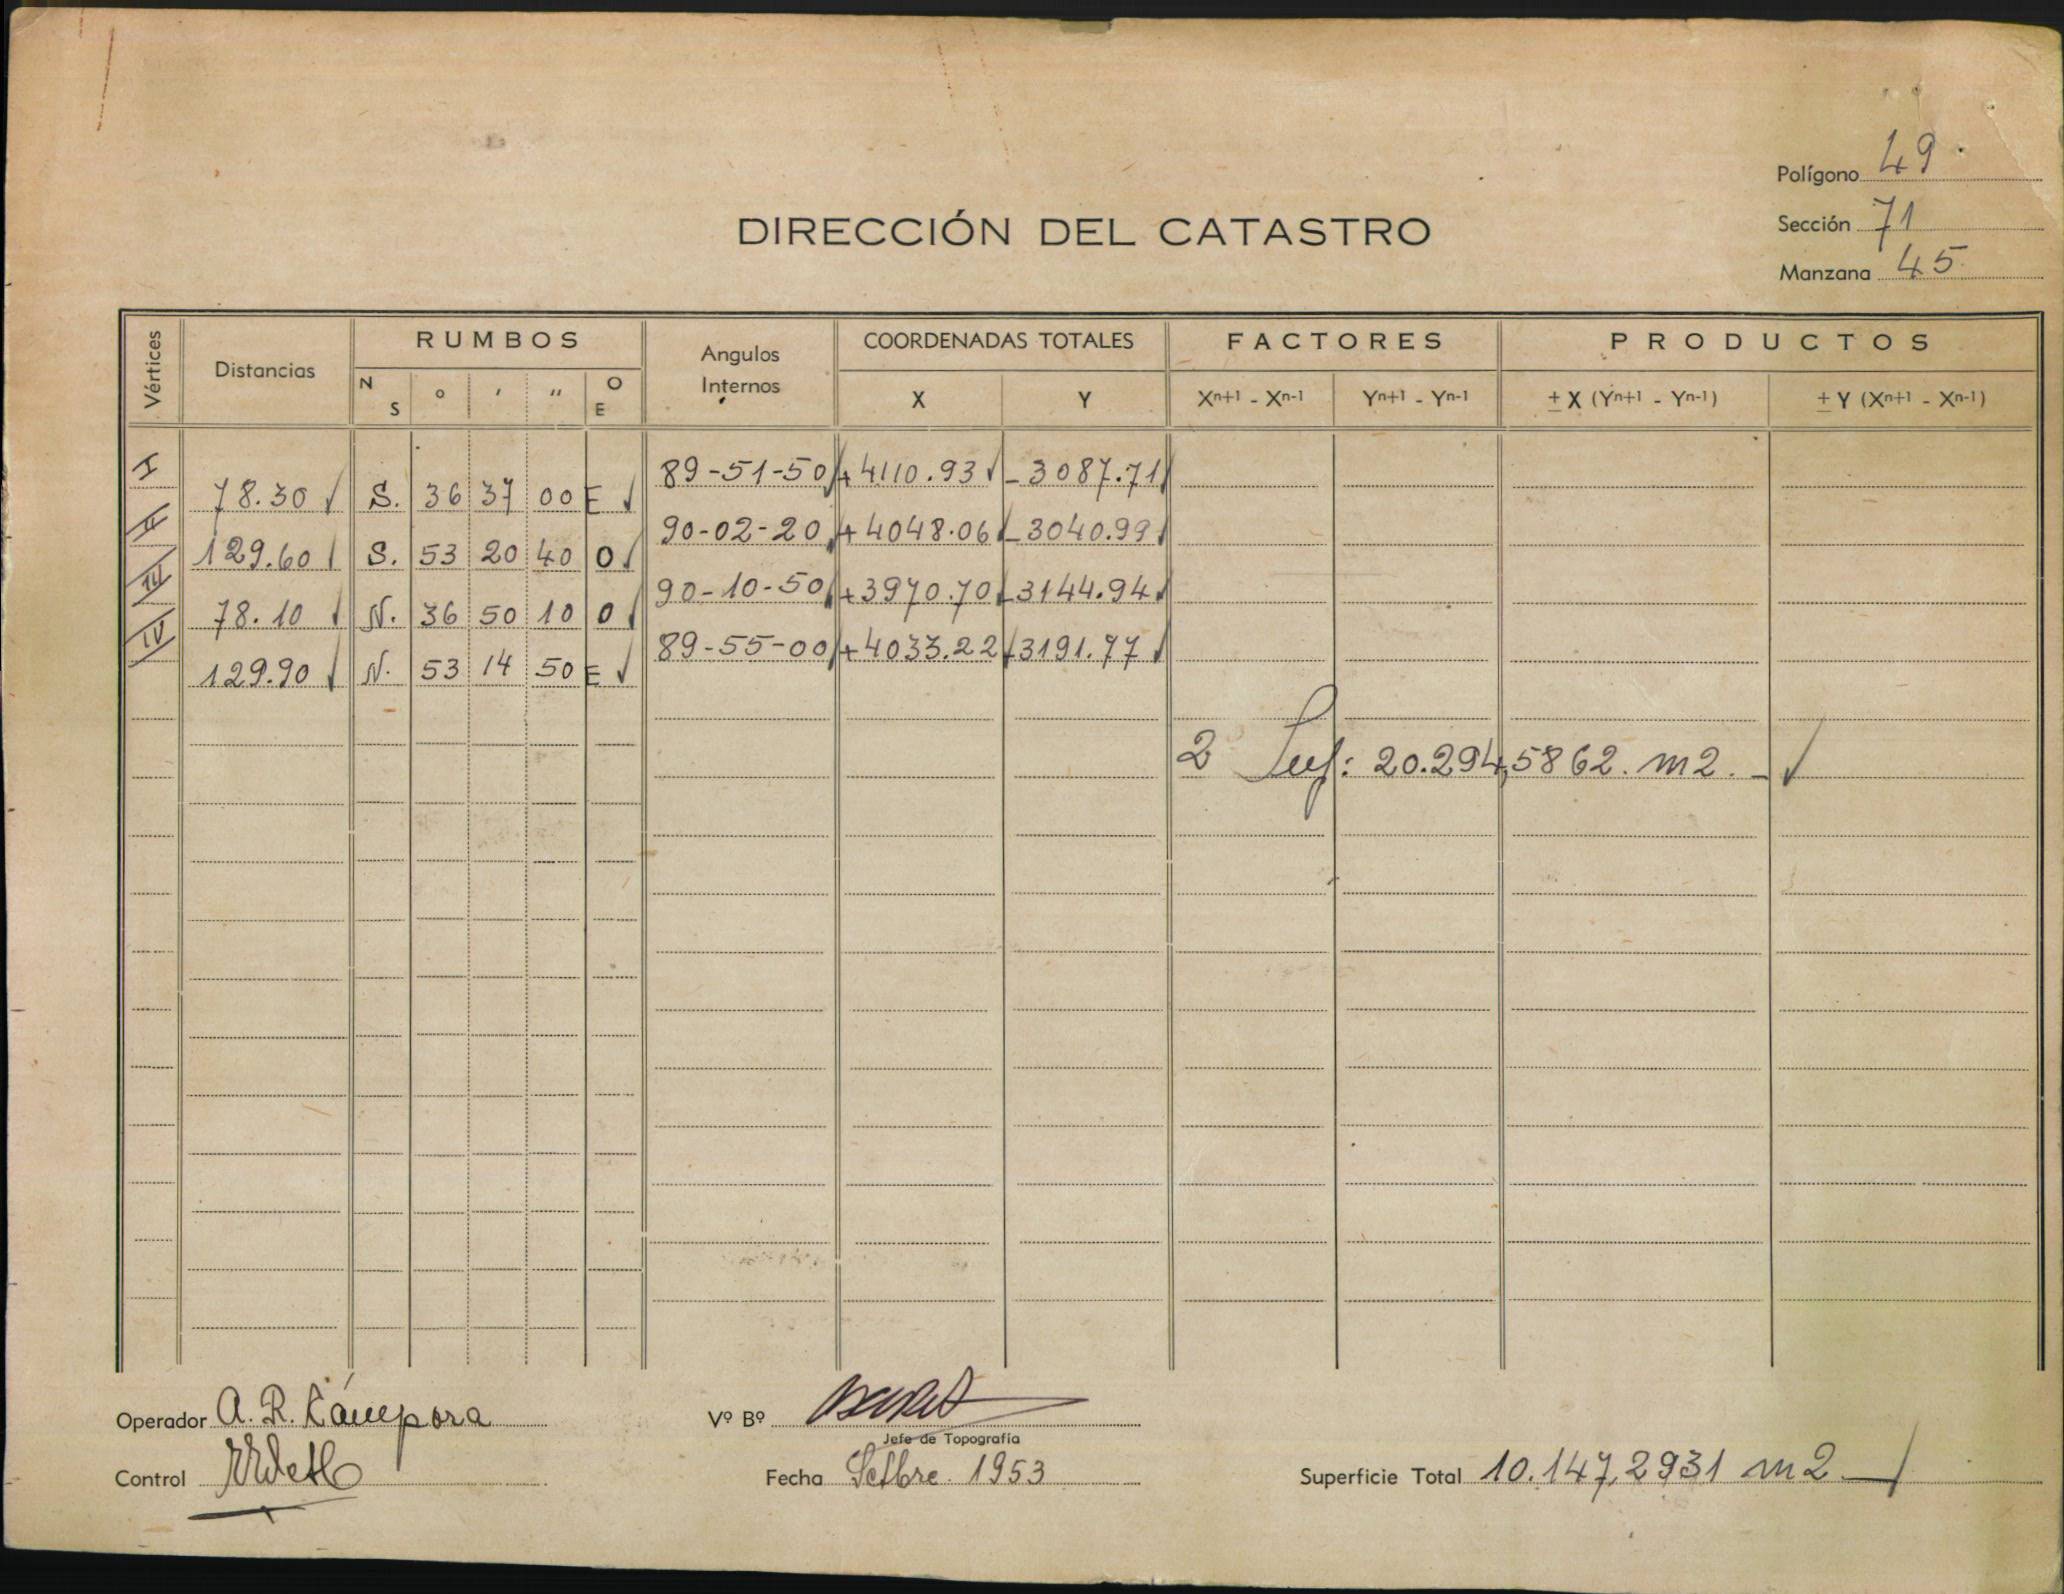 Polígono 49
Sección 71
Manzana 45
DIRECCIÓN DEL CATASTRO
Vértices Distancias RUMBOS Angulos Internos COORDENADAS TOTALES FACTORES PRODUCTOS
N S ° ' " O E X Y Xn+1 - Xn-1 Yn+1 - Yn-1 ± X (Yn+1 - Yn-1) ± Y (Xn+1 - Xn-1)
I 89-51-50 +4110.93 -3087.71
78.30 S. 36 37 00 E
II 90-02-20 +4048.06 -3040.99
129.60 S. 53 20 40 O
III 90-10-50 +3970.70 -3144.94
78.10 N. 36 50 10 O
IV 89-55-00 +4033.22 -3191.77
129.90 N. 53 14 50 E
2 Sup: 20.294,5862. m2.-
Operador A. R. Cámpora Vº Bº
Jefe de Topografía
Control Fecha Setbre. 1953 Superficie Total 10.147,2931 m2